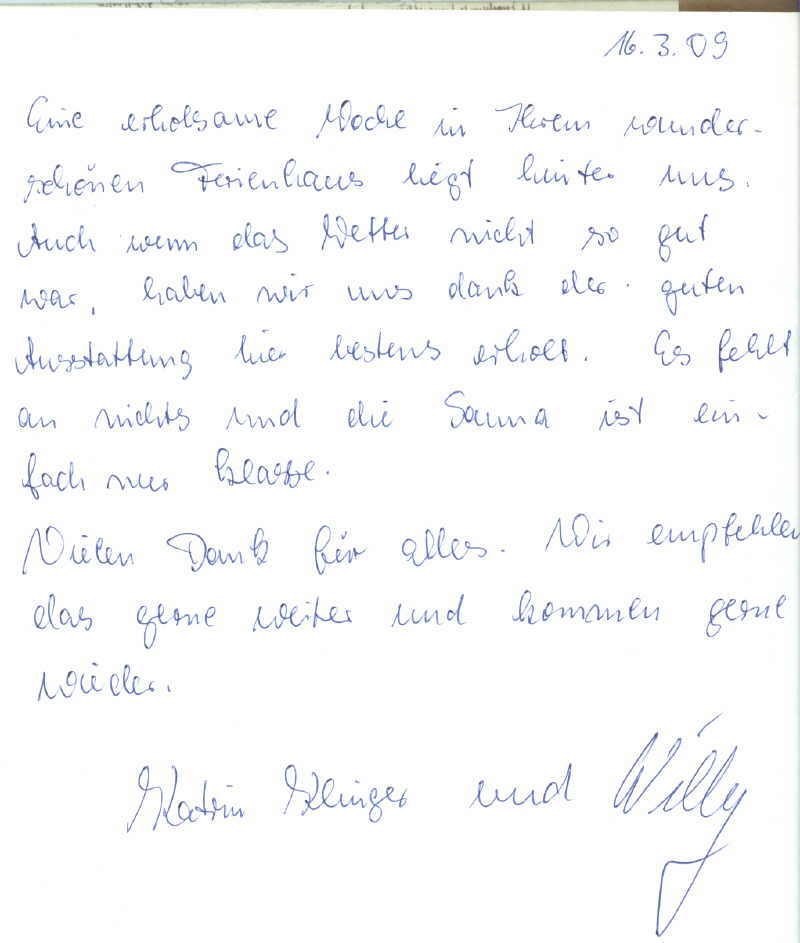 16.3.09
Eine erholsame Woche in Ihrem wunder-
schönen Ferienhaus liegt hinter uns.
Auch wenn das Wetter nicht so gut
war, haben wir uns dank der guten
Ausstattung hier bestens erholt. Es fehlt
an nichts und die Sauna ist ein-
fach nur klasse.
Vielen Dank für alles. Wir empfehlen
das gerne weiter und kommen gerne
wieder.
Katrin Klinger und Willy